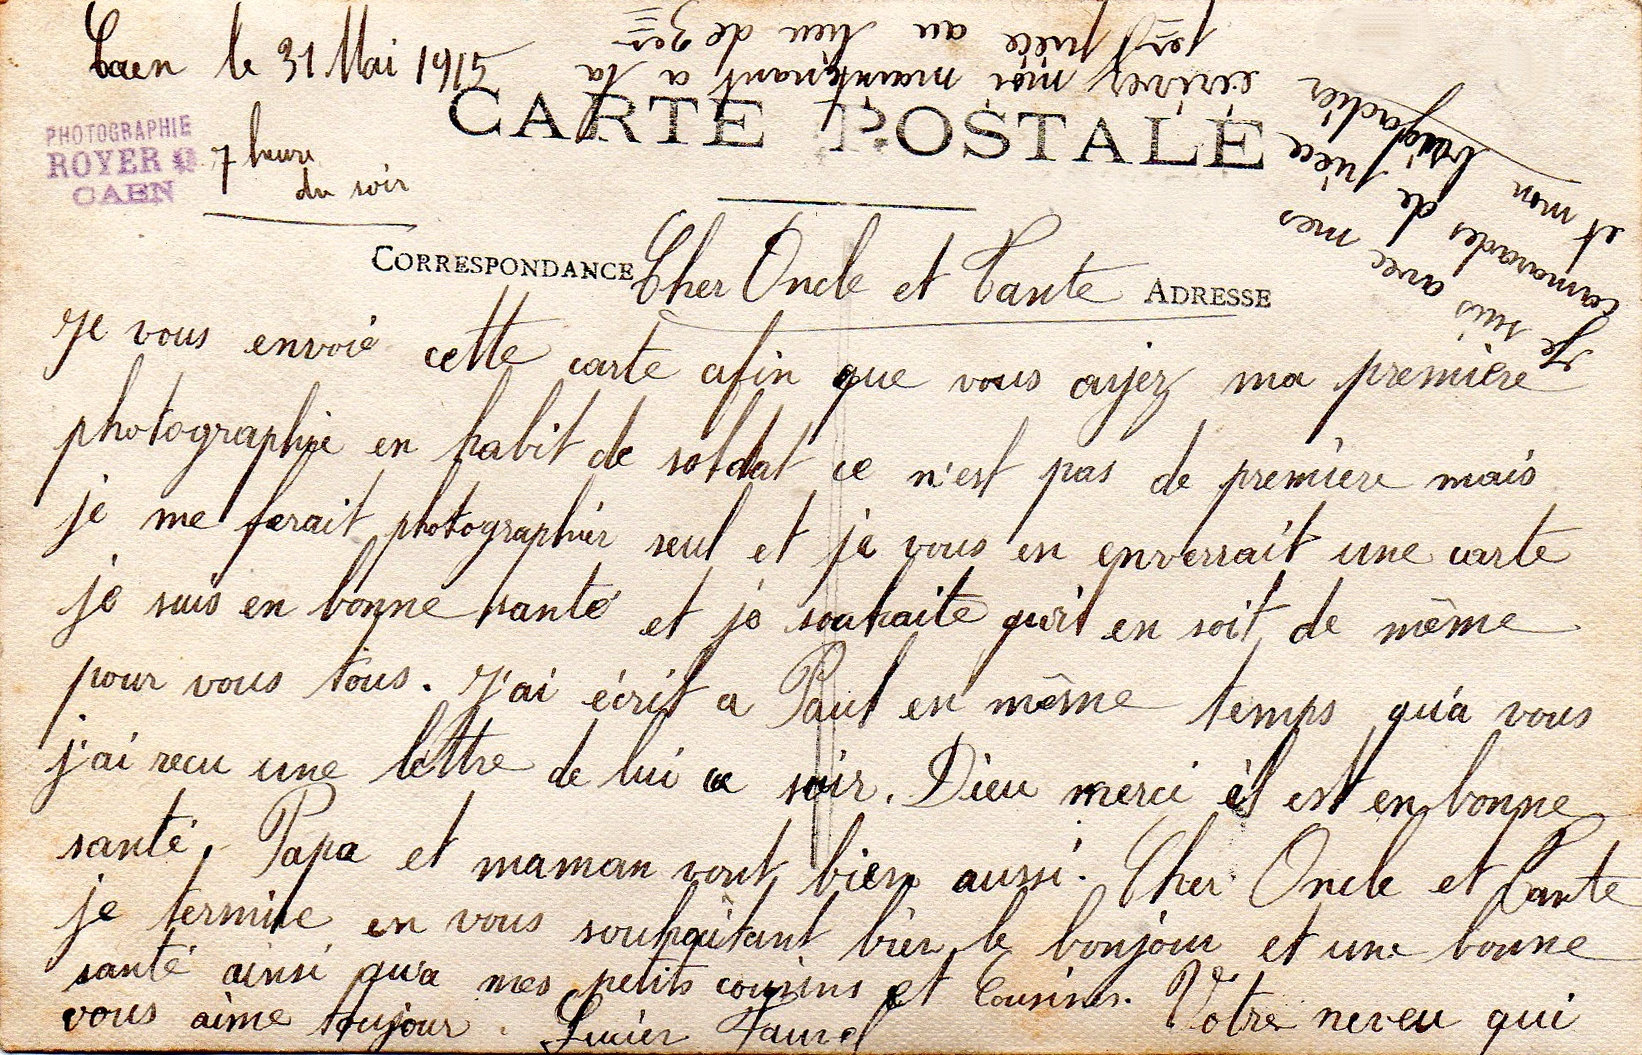 Caen le 31 Mai 1915
7 heure
du soir
PHOTOGRAPHIE
ROYER
CAEN
CARTE POSTALE
CORRESPONDANCE
ADRESSE
Cher Oncle et Tante
Je vous envoie cette carte afin que vous ayez ma première
photographie en habit de soldat ce n'est pas de première mais
je me ferait photographier seul et je vous en enverrait une carte
je suis en bonne santé et je souhaite qu'il en soit de même
pour vous tous. J'ai écrit a Paul en même temps qu'a vous
j'ai recu une lettre de lui ce soir. Dieu merci il est en bonne
santé. Papa et maman vont bien aussi. Cher Oncle et Tante
je termine en vous souhaitant bien le bonjour et une bonne
santé ainsi qu'a mes petits cousins et Cousines. Votre neveu qui
vous aime toujour. Lucien Faurel
Je suis avec mes
camarades de pièce
et mon brigadier
écrivez moi maintenant a la
1er pièce au lieu de 3er